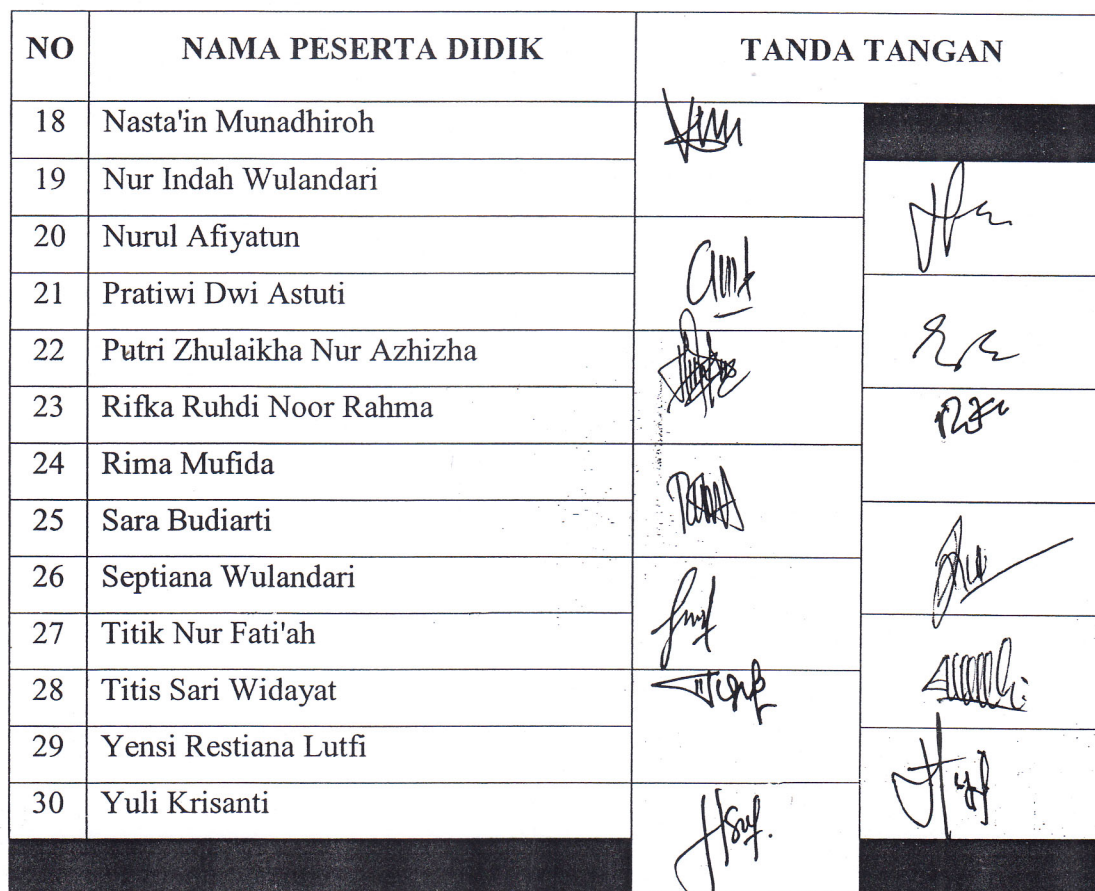 NO NAMA PESERTA DIDIK TANDA TANGAN
18 Nasta'in Munadhiroh
19 Nur Indah Wulandari
20 Nurul Afiyatun
21 Pratiwi Dwi Astuti
22 Putri Zhulaikha Nur Azhizha
23 Rifka Ruhdi Noor Rahma
24 Rima Mufida
25 Sara Budiarti
26 Septiana Wulandari
27 Titik Nur Fati'ah
28 Titis Sari Widayat
29 Yensi Restiana Lutfi
30 Yuli Krisanti